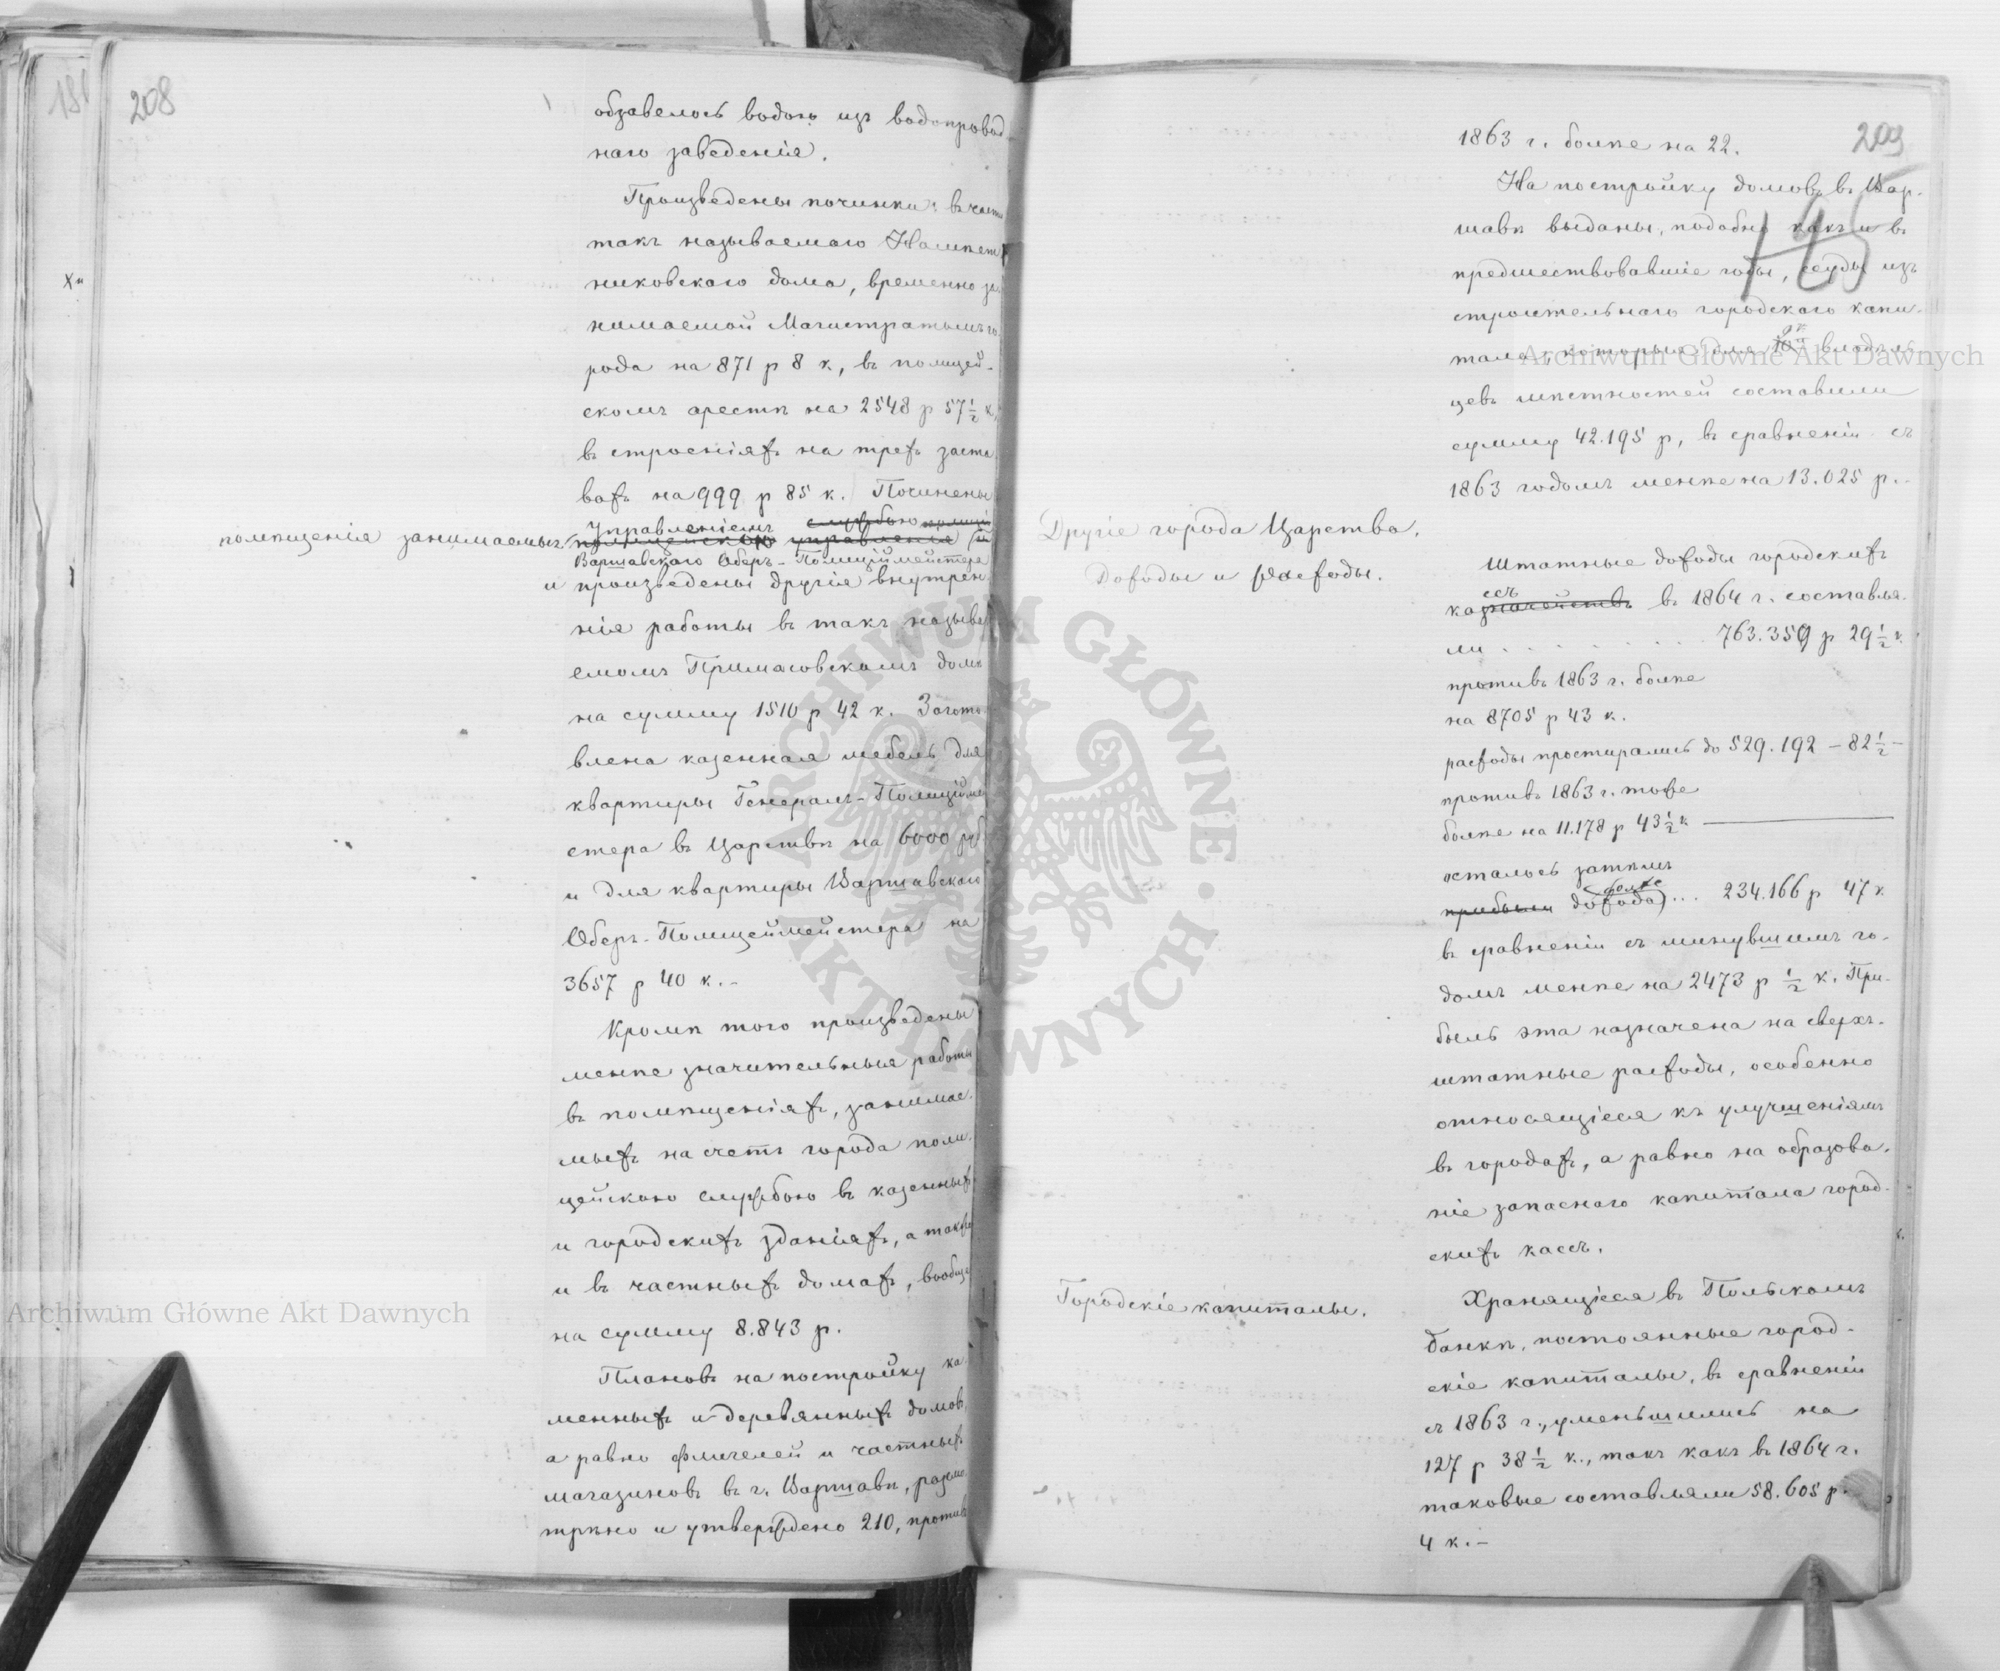 181
208
обзавелось водою изъ водопровод-
наго заведенія.
Произведены починки: въ части
такъ называемаго Намѣст-
никовскаго дома, временно за-
нимаемой Магистратомъ го-
рода на 871 р 8 к, въ полицей-
скомъ арестѣ на 2548 р 57 1/2 к,
въ строеніяхъ на трехъ заста-
вахъ на 999 р 85 к. Починены
Управленіемъ службою полиціи
помѣщенія занимаемыя полицейскою управленія и
Варшавскаго Оберъ-Полиціймейстера
и произведены другія внутрен-
нія работы въ такъ называ-
емомъ Примасовскомъ домѣ
на сумму 1510 р 42 к. Загото-
влена казенная мебель для
квартиры Генералъ-Полиціймей-
стера въ Царствѣ на 6000 руб
и для квартиры Варшавскаго
Оберъ-Полицеймейстера на
3657 р 40 к.-
Кромѣ того произведены
менѣе значительныя работы
въ помѣщеніяхъ, занимае-
мыхъ на счетъ города поли-
цейскою службою въ казенныхъ
и городскихъ зданіяхъ, а также
и въ частныхъ домахъ, вообще
на сумму 8.843 р.
Плановъ на постройку ка-
менныхъ и деревянныхъ домовъ,
а равно флигелей и частныхъ
магазиновъ въ г. Варшавѣ, разсмо-
трѣно и утверждено 210, противъ
209
195
1863 г. болѣе на 22.
На постройку домовъ въ Вар-
шавѣ выданы, подобно какъ и въ
предшествовавшіе годы, ссуды изъ
строительнаго городскаго капи-
тала, которыя для 10 владѣль-
цевъ мѣстностей составили
сумму 42.195 р, въ сравненіи съ
1863 годомъ менѣе на 13.025 р.-
Другіе города Царства.
Доходы и расходы.
Штатные доходы городскихъ
ссъ
казначействъ въ 1864 г. составля-
ли . . . . . . . 763.359 р 29 1/2 к.
противъ 1863 г. болѣе
на 8705 р 43 к.
расходы простирались до 529.192 - 82 1/2 -
противъ 1863 г. тоже
болѣе на 11.178 р 43 1/2 к
осталось затѣмъ
болѣе
прибыли дохода) ... 234.166 р 47 к
въ сравненіи съ минувшимъ го-
домъ менѣе на 2473 р 1/2 к. При-
быль эта назначена на сверхъ-
штатные расходы, особенно
относящіеся къ улучшеніямъ
въ городахъ, а равно на образова-
ніе запаснаго капитала город-
скихъ кассъ.
Городскіе капиталы.
Хранящіеся въ Польскомъ
банкѣ, постоянные город-
скіе капиталы, въ сравненіи
съ 1863 г., уменьшились на
127 р 38 1/2 к., такъ какъ въ 1864 г.
таковые составляли 58.605 р.
4 к.-
Archiwum Główne Akt Dawnych
Archiwum Główne Akt Dawnych
ARCHIWUM GŁÓWNE · AKT DAWNYCH ·